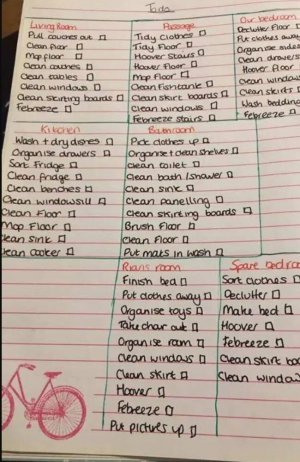 Todo
Living Room
Pull couches out
Clean floor
Mop floor
Clean couches
Clean tables
Clean windows
Clean skirting boards
Febreeze
Passage
Tidy clothes
Tidy Floor
Hoover stairs
Hoover Floor
Mop Floor
Clean Fishtank
Clean skirt boards
Clean windows
Febreeze stairs
Our bedroom
Declutter Floor
Put clothes away
Organise
Clean drawers
Hoover Floor
Clean window
Clean skirts
Wash bedding
Febreeze
Kitchen
Wash + dry dishes
Organise drawers
Sort Fridge
Clean fridge
Clean benches
Clean windowsill
Clean Floor
Mop Floor
Clean sink
Clean cooker
Bathroom
Pick clothes up
Organise + clean shelves
Clean toilet
Clean bath/shower
Clean sink
Clean panelling
Clean skirting boards
Brush Floor
Clean Floor
Put mats in wash
Rians room
Finish bed
Put clothes away
Organise toys
Take chair out
Organise room
Clean windows
Clean skirt
Hoover
Febreeze
Put pictures up
Spare bedroo
Sort clothes
Declutter
Make bed
Hoover
Febreeze
Clean skirt boa
Clean window